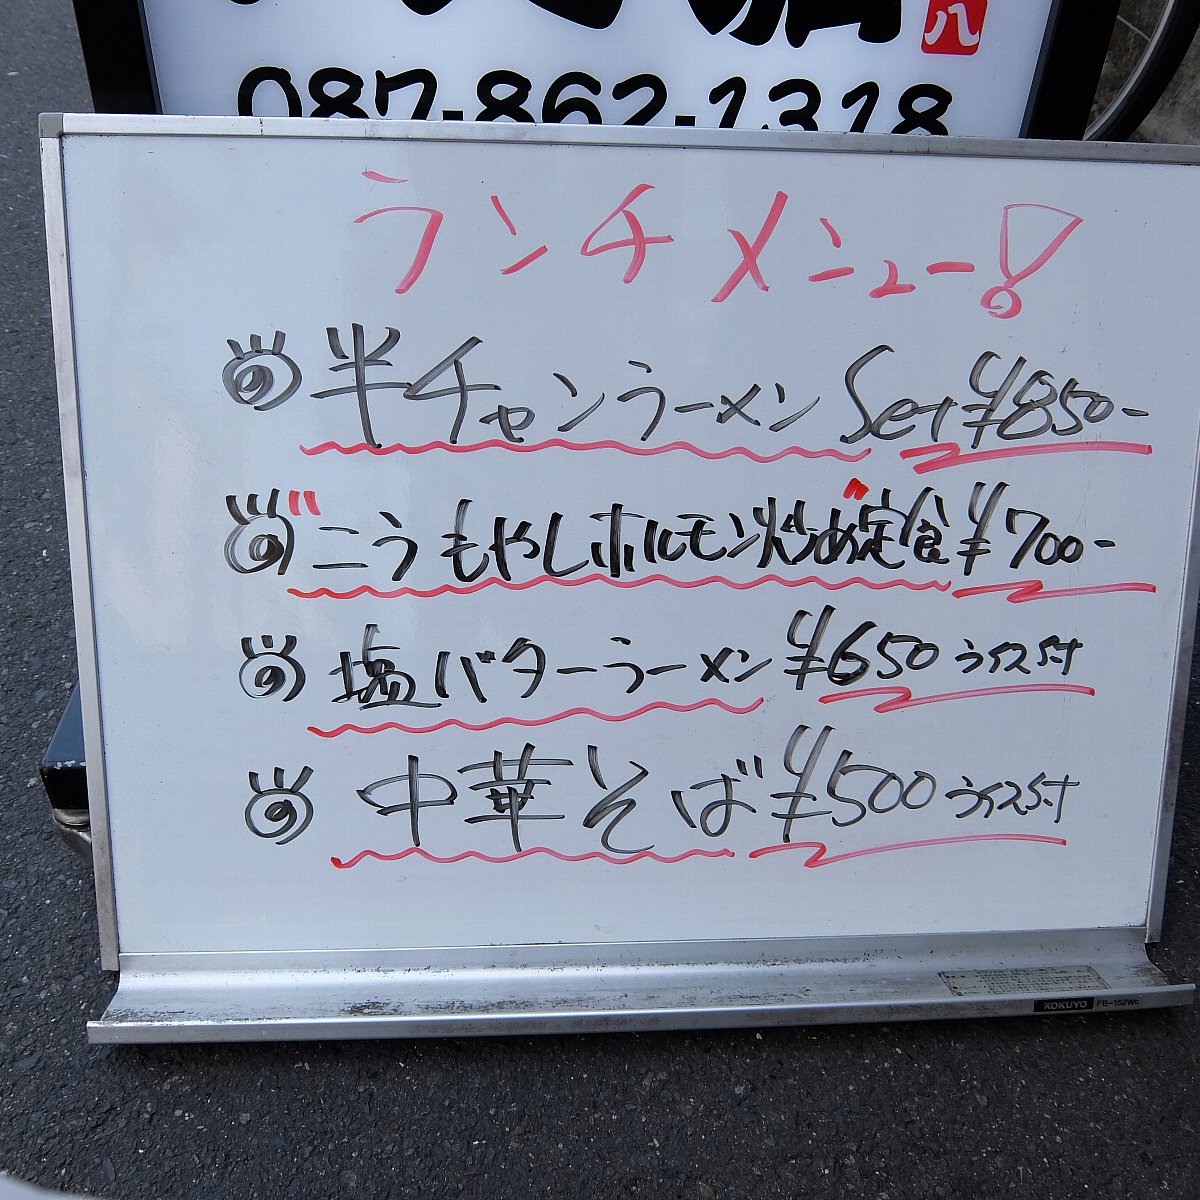 八
087-862-1318
ランチメニュー!
半チャンラーメン Set ¥850-
"こうもやしホルモン炒め定食" ¥700-
塩バターラーメン ¥650 ライス付
中華そば ¥500 ライス付
KOKUYO FB-152WC